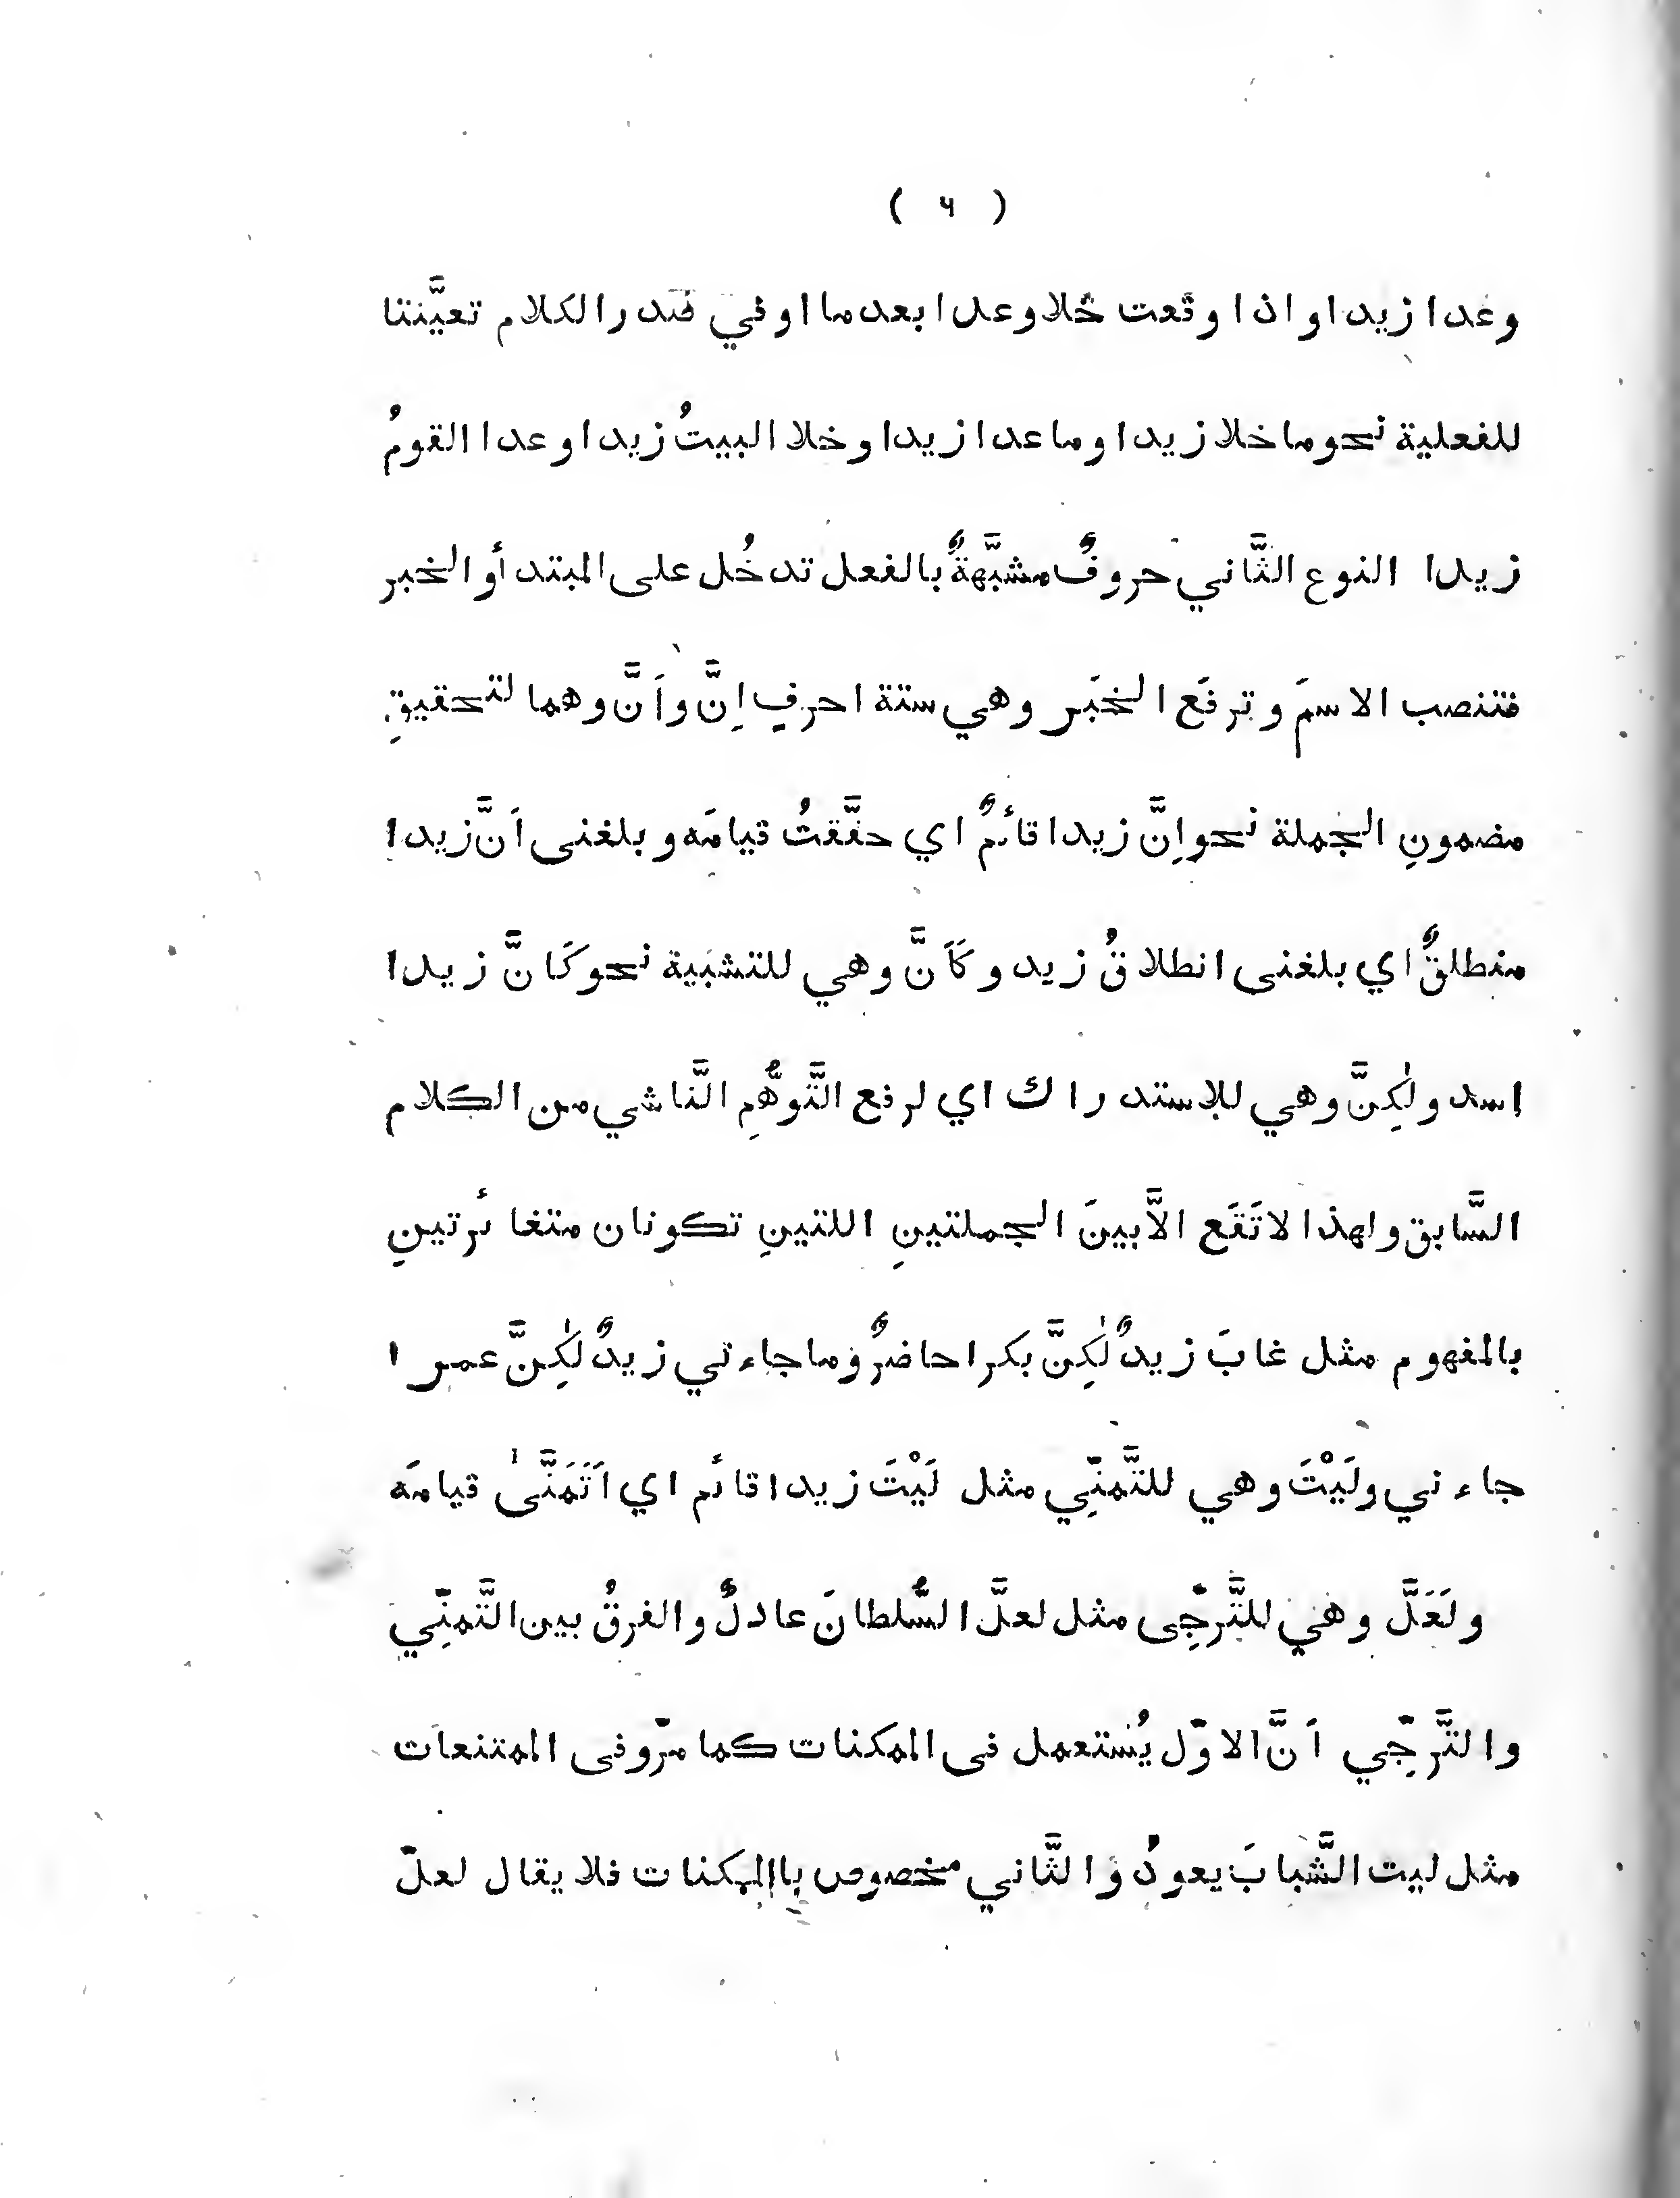 ( ۶ )
وعدا زيدا واذا وقعت خلا وعدا بعد ما او في صدر الكلام تعيَّنتا
للفعلية نحو ما خلا زيدا وما عدا زيدا وخلا البيتُ زيدا وعدا القومُ
زيدا النوع الثَّاني حروفٌ مشبَّهةٌ بالفعل تدخُل على المبتدأ والخبر
فتنصب الاسمَ وترفَع الخبَر وهي ستة احرفٍ اِنَّ واَنَّ وهما لتحقيقِ
مضمونِ الجُملة نحو اِنَّ زيدا قائمٌ اي حقَّقتُ قيامَه وبلغنى اَنَّ زيدا
منطلقٌ اي بلغنى انطلاقُ زيد وكَاَنَّ وهي للتشبية نحو كَانَّ زيدا
اسد ولٰكِنَّ وهي للاِستدراك اي لرفع التَّوهُّمِ النَّاشي من الكلام
السَّابق ولهذا لا تَقَع الاَّ بينَ الجملتينِ اللتينِ تكونان متغائرتينِ
بالمفهوم مثل غابَ زيدٌ لٰكِنَّ بكرا حاضرٌ وما جاءني زيدٌ لٰكِنَّ عمرا
جاءني ولَيْتَ وهي للتَّمنِّي مثل لَيْتَ زيدا قائم اي اَتَمَنَّىٰ قيامَه
ولَعَلَّ وهي للتَّرجِّى مثل لعلَّ السُّلطانَ عادلٌ والفرقُ بين التَّمنِّي
والتَّرجِّي اَنَّ الاوّل يُستعمل فى الممكنات كما مرّ وفى الممتنعات
مثل ليت الشَّبابَ يعودُ والثَّاني مخصوص باالممكنات فلا يقال لعلّ